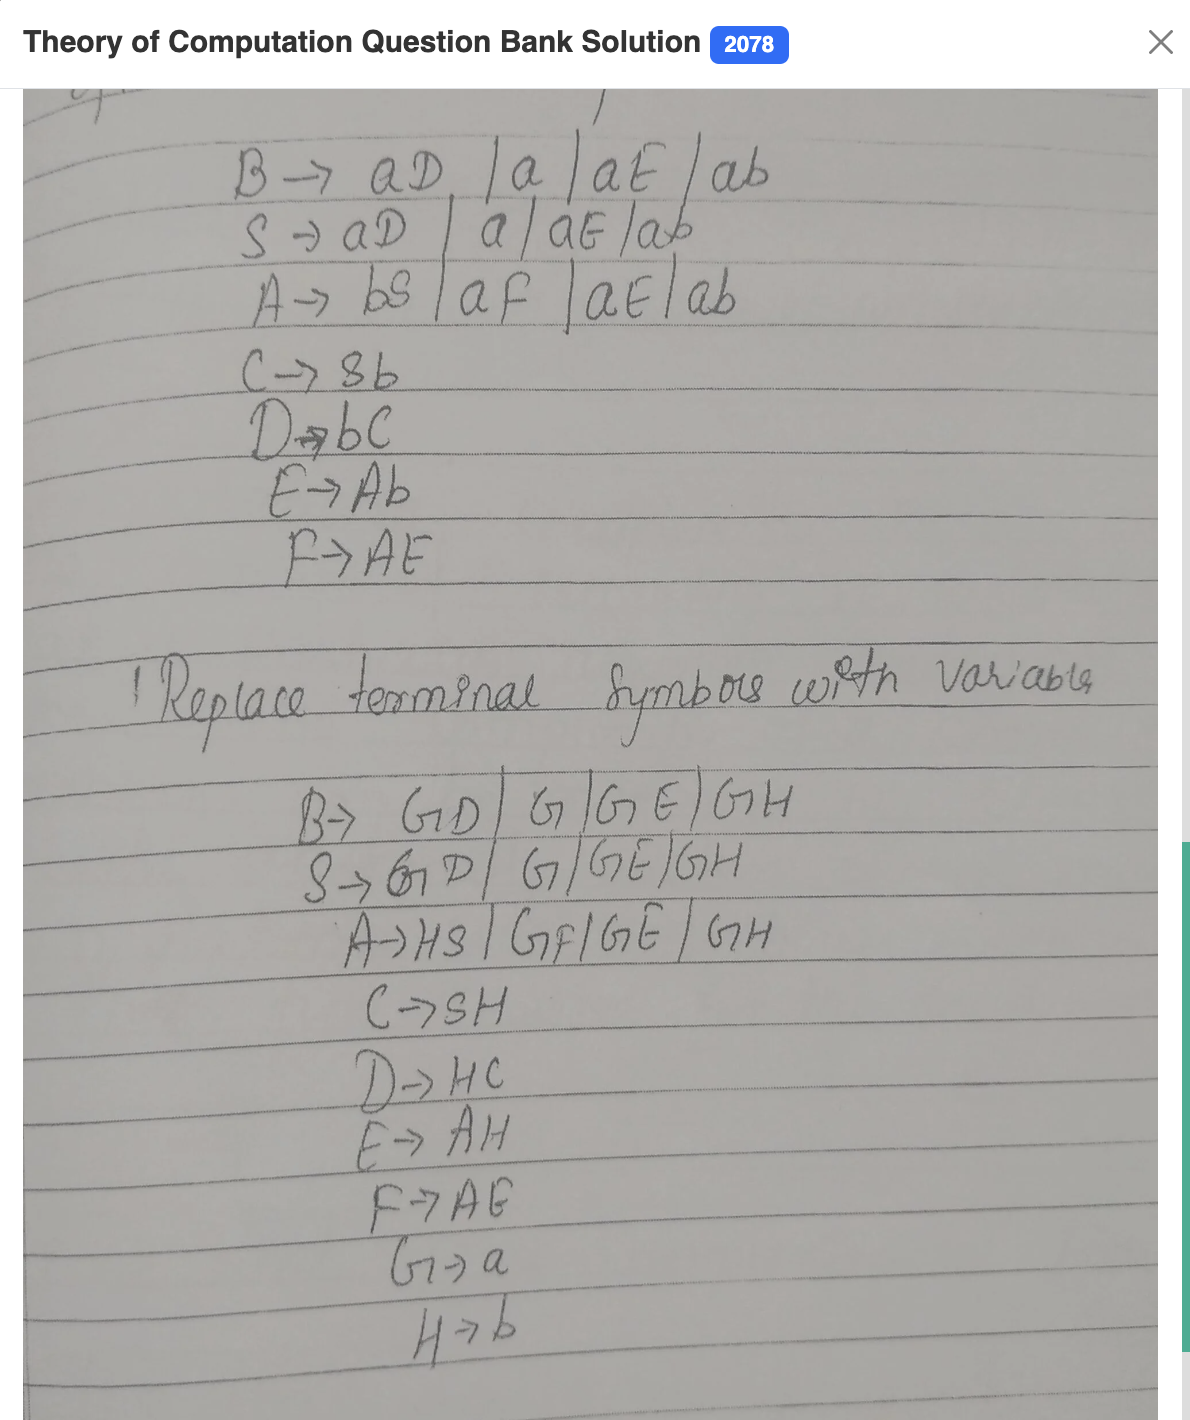 Theory of Computation Question Bank Solution 2078
B → aD | a | aE | ab
S → aD | a | aE | ab
A → bS | aF | aE | ab
C → Sb
D → bC
E → Ab
F → AE
Replace terminal Symbols with Variable
B → GD | G | GE | GH
S → GD | G | GE | GH
A → HS | GF | GE | GH
C → SH
D → HC
E → AH
F → AE
G → a
H → b